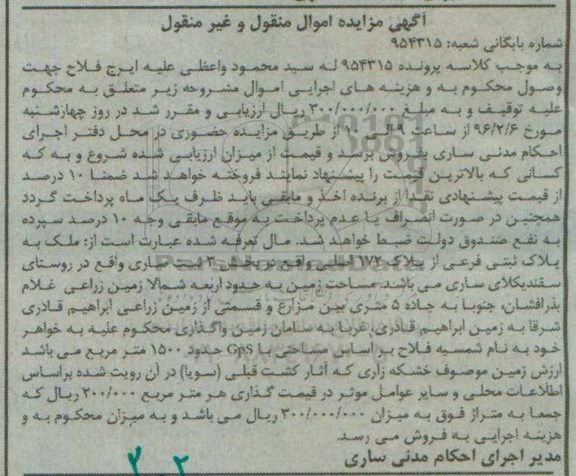 آگهی مزایده اموال منقول و غیر منقول
شماره بایگانی شعبه: ۹۵۴۳۱۵
به موجب کلاسه پرونده ۹۵۴۳۱۵ له سید محمود واعظی علیه ایرج فلاح جهت
وصول محکوم به و هزینه های اجرایی اموال مشروحه زیر متعلق به محکوم
علیه توقیف و به مبلغ ۳۰۰/۰۰۰/۰۰۰ ریال ارزیابی و مقرر شد در روز چهارشنبه
مورخ ۹۶/۲/۶ از ساعت ۹ الی ۱۰ از طریق مزایده حضوری در محل دفتر اجرای
احکام مدنی ساری بفروش برسد و قیمت از میزان ارزیابی شده شروع و به که
کسانی که بالاترین قیمت را پیشنهاد نمایند فروخته خواهد شد ضمنا ۱۰ درصد
از قیمت پیشنهادی نقدا از برنده اخذ و مابقی باید ظرف یک ماه پرداخت گردد
همچنین در صورت انصراف یا عدم پرداخت به موقع مابقی وجه ۱۰ درصد سپرده
به نفع صندوق دولت ضبط خواهد شد. مال تعرفه شده عبارت است از: ملک به
پلاک ثبتی فرعی از پلاک ۱۷۲ اصلی واقع در بخش ۳ ثبت ساری واقع در روستای
سقندیکلای ساری می باشد مساحت زمین به حدود اربعه شمالا زمین زراعی غلام
بذرافشان، جنوبا به جاده ۵ متری بین مزارع و قسمتی از زمین زراعی ابراهیم قادری
شرقا به زمین ابراهیم قادری، غربا به سامان زمین واگذاری محکوم علیه به خواهر
خود به نام شمسیه فلاح بر اساس مساحتی با GpS حدود ۱۵۰۰ متر مربع می باشد
ارزش زمین موصوف خشکه زاری که آثار کشت قبلی (سویا) در آن رویت شده براساس
اطلاعات محلی و سایر عوامل موثر در قیمت گذاری هر متر مربع ۲۰۰/۰۰۰ ریال که
جمعا به متراژ فوق به میزان ۳۰۰/۰۰۰/۰۰۰ ریال می باشد و به میزان محکوم به و
هزینه اجرایی به فروش می رسد.
مدیر اجرای احکام مدنی ساری
۳ ۲